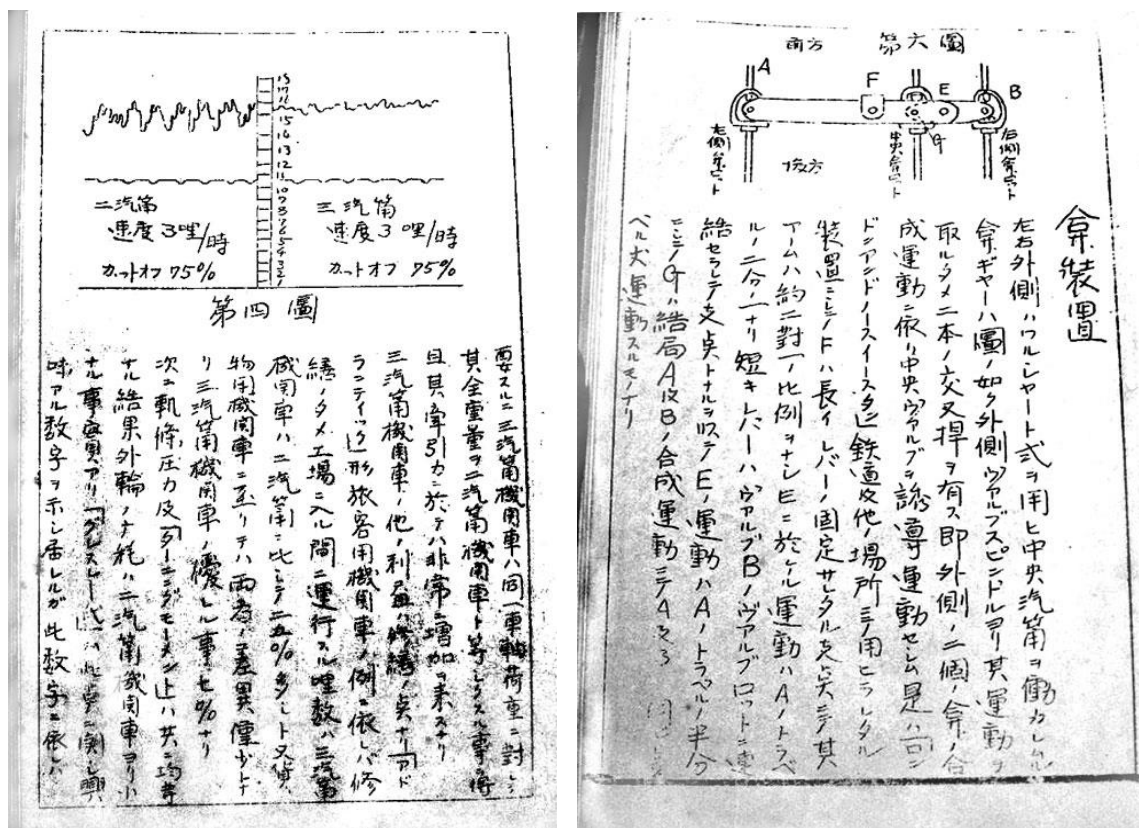 18
17
16
15
14
13
12
11
10
9
8
7
6
5
4
3
2
1
二汽笛
速度3哩/時
カットオフ 75%
三汽笛
速度3哩/時
カットオフ 75%
第四圖
要スルニ三汽筒機関車ハ同一車軸荷重ニ対シ
其全重量ヲ二汽筒機関車ト等シクスル事ヲ得
且其牽引力ニ於テハ非常ニ増加ヲ来スナリ
三汽筒機関車ノ他ノ利益ハ修繕ノ点ナリ「アト
ランティック」形旅客用機関車ノ例ニ依レバ修
繕ノタメ工場ニ入ル間ニ運行スル哩数ハ三汽筒
機関車ハ二汽筒ニ比シテ二五%多シト又貨
物用機関車ニ至リテハ両者ノ差異僅少ナ
リ三汽筒機関車ノ優レル事七%ナリ
次ニ軌條圧力及「ターニングモーメント」ハ共ニ均等
ナル結果外輪ノ
耗ハ二汽筒機関車ヨリ小
ナル事実アリ「グレスレー氏」ハ此点ニ関シ興
味アル数字ヲ示シ居レルガ此数字ニ依レバ
前方
第六圖
A
F
E
B
G
後方
弁装置
左右外側ハワルシャート式ヲ用ヒ中央汽筒ヲ働カシムル
弁ギヤーハ圖ノ如ク外側ヴァルブスピンドルヨリ其運動ヲ
取ルタメ二本ノ交叉桿ヲ有ス即外側ノ二個ノ弁ノ合
成運動ニ依リ中央ヴァルブヲ誘導運動セシム是ハ「ロン
ドンアンドノースイースタン」鉄道及他ノ場所ニテ用ヒラレタル
装置ニシテFハ長イレバーノ固定サレタル支点ニテ其
アームハ約二対一ノ比例ヲナシEニ於ケル運動ハAノトラベ
ルノ二分ノ一ナリ短キレバーハヴァルブBノヴァルブロットニ連
結セラレテ支点トナルヲ以テEノ運動ハAノトラベルノ半分
ニシテGハ結局A及Bノ合成運動ニテA
ベル丈運動スルモノナリ